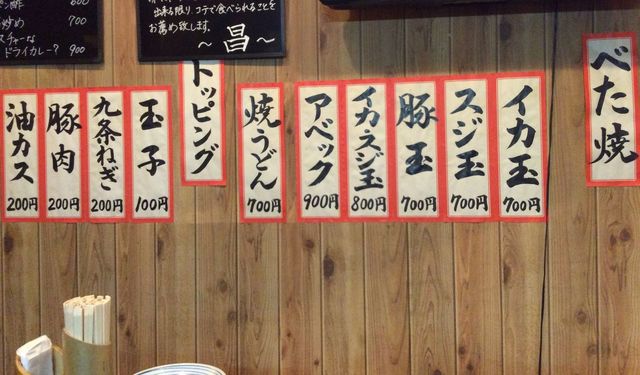 べた焼
イカ玉
700円
スジ玉
700円
豚玉
700円
イカスジ玉
800円
アベック
900円
焼うどん
700円
トッピング
玉子
100円
九条ねぎ
200円
豚肉
200円
油カス
200円
出来る限り、コテで食べられることを
お薦め致します。
～昌～
ン酢 600
炒め 700
スチャーな
ドライカレー? 900